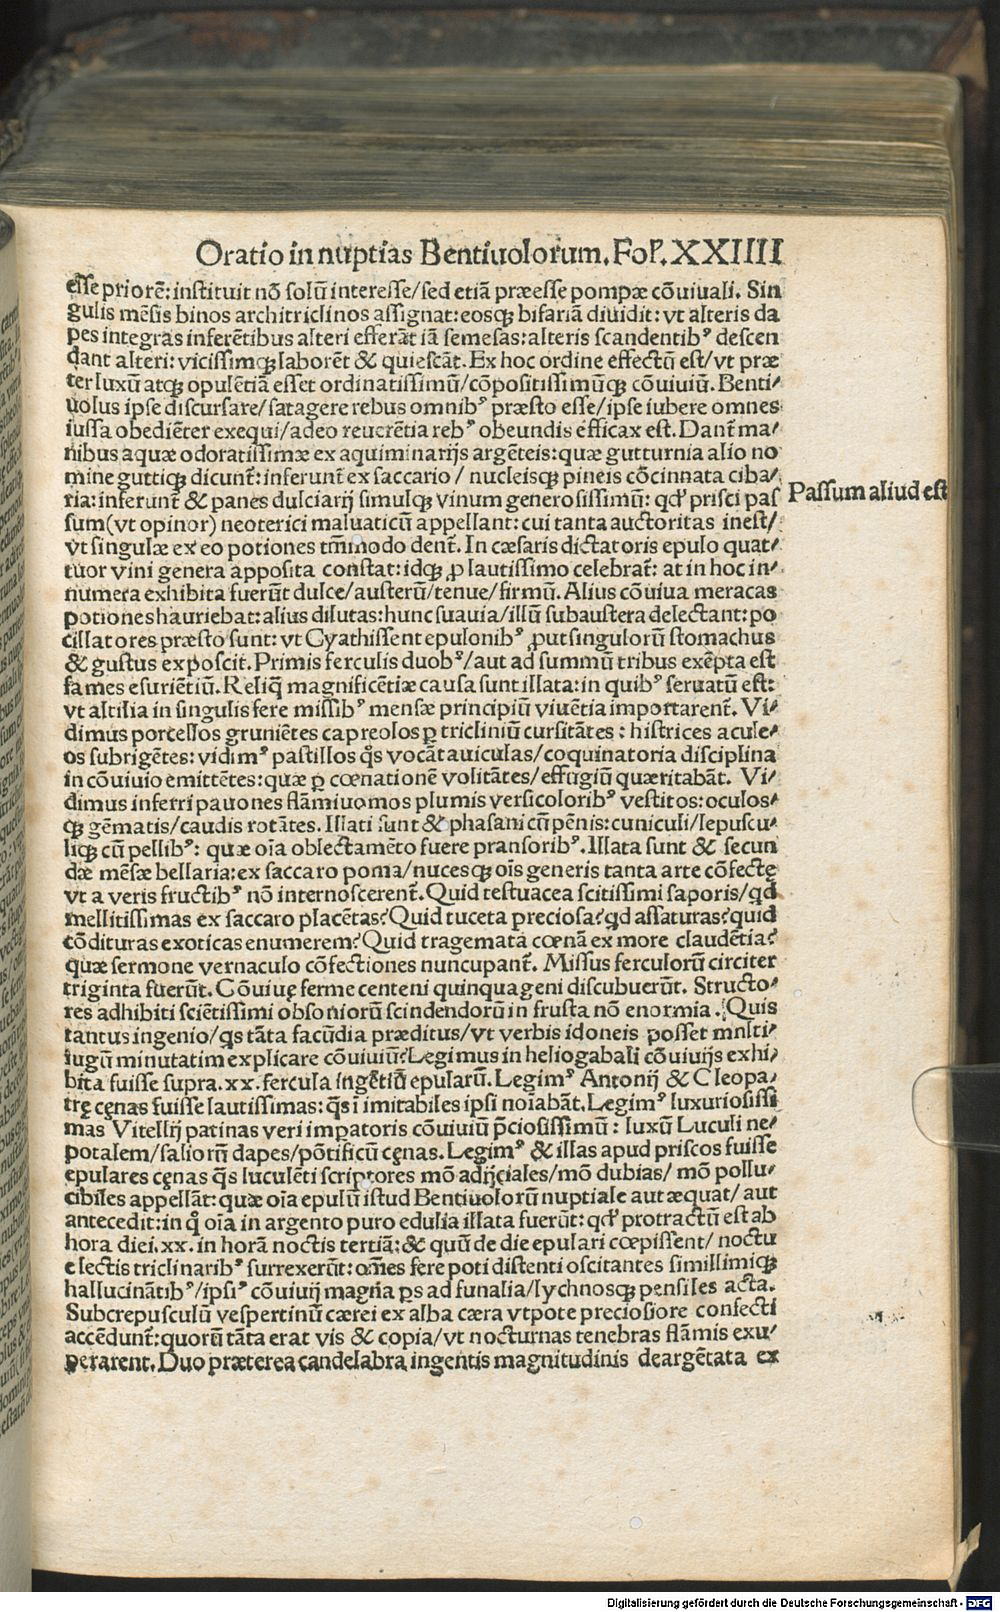 Oratio in nuptias Bentiuolorum. Fol. XXIIII
esse priorē: instituit nō solū interesse/sed etiā præesse pompæ cōuiuali. Sin
gulis mēsis binos architriclinos assignat: eosqꝫ bifariā diuidit: vt alteris da
pes integras inferētibus alteri efferāt iā semesas: alteris scandentibꝰ descen
dant alteri: vicissimqꝫ laborēt & quiescāt. Ex hoc ordine effectū est/vt præ
ter luxū atqꝫ opulētiā esset ordinatissimū/cōpositissimūqꝫ cōuiuiū. Benti⸗
uolus ipse discursare/satagere rebus omnibꝰ præsto esse/ipse iubere omnes
iussa obediēter exequi/adeo reuerētia rebꝰ obeundis efficax est. Dant̄ ma⸗
nibus aquæ odoratissimæ ex aquiminarijs argēteis: quæ gutturnia alio no
mine guttiqꝫ dicunt̄: inferunt̄ ex saccario / nucleisqꝫ pineis cōcinnata ciba⸗
ria: inferunt̄ & panes dulciarij simulqꝫ vinum generosissimū: qd̓ prisci pas
Passum aliud est
sum (vt opinor) neoterici maluaticū appellant: cui tanta auctoritas inest/
vt singulæ ex eo potiones tm̄modo dent̄. In cæsaris dictatoris epulo quat⸗
tuor vini genera apposita constat: idqꝫ ꝓ lautissimo celebrat̄: at in hoc in⸗
numera exhibita fuerūt dulce/austerū/tenue/firmū. Alius cōuiua meracas
potiones hauriebat: alius dilutas: hunc suauia/illū subaustera delectant: po
cillatores præsto sunt: vt Cyathissent epulonibꝰ ꝓut singulorū stomachus
& gustus exposcit. Primis ferculis duobꝰ/aut ad summū tribus exēpta est
fames esuriētiū. Reliq̄ magnificētiæ causa sunt illata: in quibꝰ seruatū est:
vt altilia in singulis fere missibꝰ mensæ principiū viuētia importarent̄. Vi⸗
dimus porcellos gruniētes capreolos ꝑ tricliniū cursitātes: histrices acule⸗
os subrigētes: vidimꝰ pastillos q̄s vocāt auiculas/coquinatoria disciplina
in cōuiuio emittētes: quæ ꝑ cœnationē volitātes/effugiū quæritabāt. Vi⸗
dimus inferri pauones flāmiuomos plumis versicoloribꝰ vestitos: oculos⸗
qꝫ gēmatis/caudis rotātes. Illati sunt & phasani cū pēnis: cuniculi/lepuscu⸗
liqꝫ cū pellibꝰ: quæ oīa oblectamēto fuere pransoribꝰ. Illata sunt & secun
dæ mēsæ bellaria: ex saccaro poma/nucesqꝫ oīs generis tanta arte cōfectę
vt a veris fructibꝰ nō internoscerent̄. Quid testuacea scitissimi saporis/qd
mellitissimas ex saccaro placētas? Quid tuceta preciosa? qd assaturas? quid
cōdituras exoticas enumerem? Quid tragemata cœnā ex more claudētia?
quæ sermone vernaculo cōfectiones nuncupant̄. Missus ferculorū circiter
triginta fuerūt. Cōuiuę ferme centeni quinquageni discubuerūt. Structo⸗
res adhibiti sciētissimi obsoniorū scindendorū in frusta nō enormia. Quis
tantus ingenio/q̄s tāta facūdia præditus/vt verbis idoneis posset multi⸗
iugū minutatim explicare cōuiuiū? Legimus in heliogabali cōuiuijs exhi⸗
bita fuisse supra .xx. fercula ingētiū epularū. Legimꝰ Antonij & Cleopa⸗
trę cęnas fuisse lautissimas: q̄s īimitabiles ipsi noīabāt. Legimꝰ luxuriosissi
mas Vitellij patinas veri imperatoris cōuiuiū p̄ciosissimū: luxū Luculi ne⸗
potalem/saliorū dapes/pōtificū cęnas. Legimꝰ & illas apud priscos fuisse
epulares cęnas q̄s luculēti scriptores mō adijciales/mō dubias/ mō pollu⸗
cibiles appellāt: quæ oīa epulū istud Bentiuolorū nuptiale aut æquat/ aut
antecedit: in q̄ oīa in argento puro edulia illata fuerūt: qd̓ protractū est ab
hora diei .xx. in horā noctis tertiā: & quū de die epulari cœpissent/ noctu
e lectis triclinaribꝰ surrexerūt: oēs fere poti distenti oscitantes simillimiqꝫ
hallucinātibꝰ/ipsiꝰ cōuiuij magna ꝑs ad funalia/lychnosqꝫ pensiles acta.
Subcrepusculū vespertinū cærei ex alba cæra vtpote preciosiore confecti
accēdunt̄: quorū tāta erat vis & copia/vt nocturnas tenebras flāmis exu⸗
perarent. Duo præterea candelabra ingentis magnitudinis deargētata ex
Digitalisierung gefördert durch die Deutsche Forschungsgemeinschaft - DFG